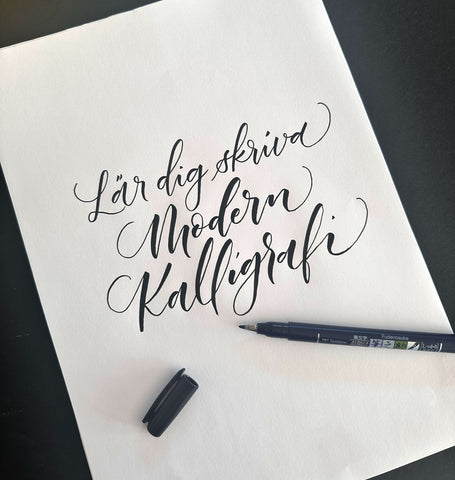 Lär dig skriva
Modern
Kalligrafi
Fudenosuke